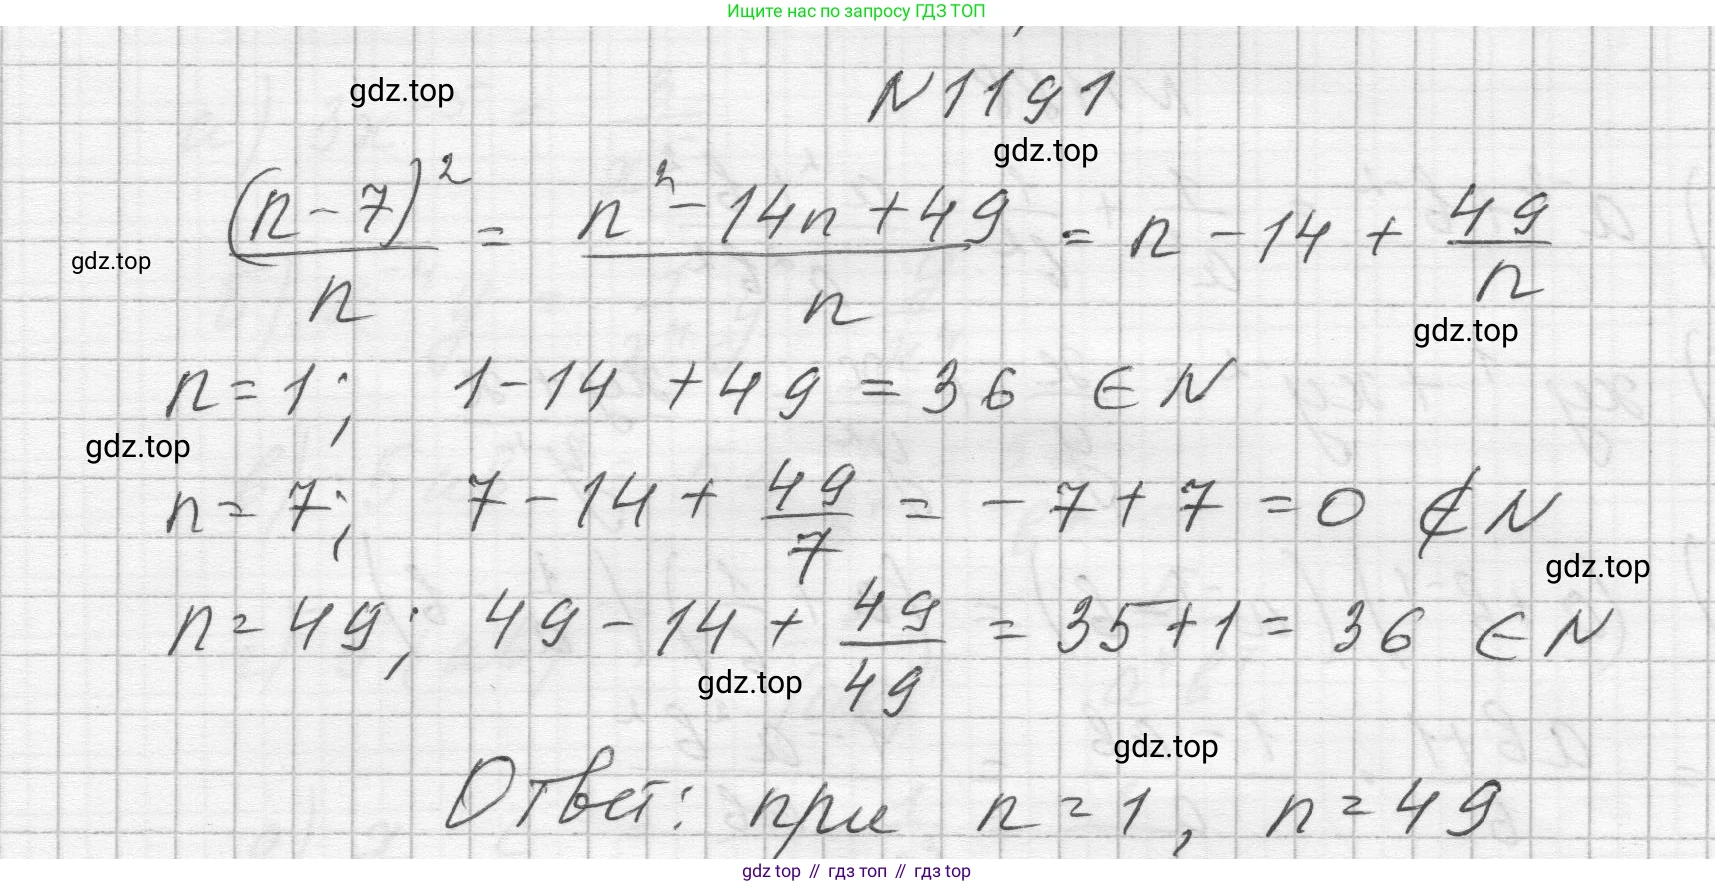 Ищите нас по запросу ГДЗ ТОП
N 1191
gdz.top
gdz.top
(n - 7)² / n = (n² - 14n + 49) / n = n - 14 + 49/n
gdz.top
gdz.top
n = 1; 1 - 14 + 49 = 36 ∈ N
gdz.top
n = 7; 7 - 14 + 49/7 = - 7 + 7 = 0 ∉ N
gdz.top
n = 49; 49 - 14 + 49/49 = 35 + 1 = 36 ∈ N
gdz.top
gdz.top
Ответ: при n = 1, n = 49
gdz top // гдз топ // гдз top